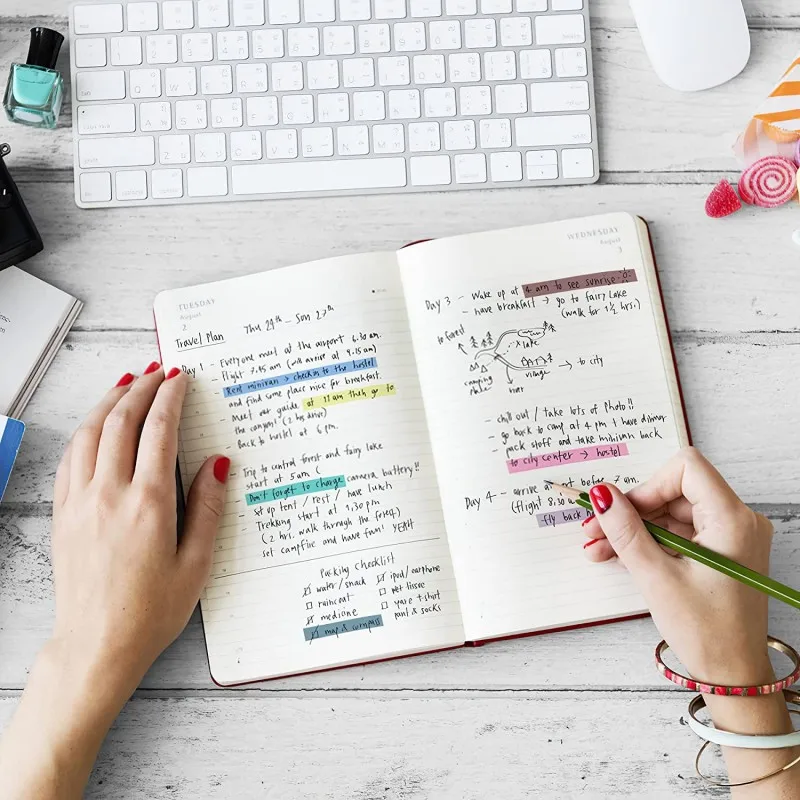 TUESDAY
August
2
Travel Plan
Thu 29th - Sun 27th
Day 1 - Everyone meet at the airport 6.30 am.
- flight 7.45 am (will arrive at 9.15 am)
- Rent minivan → check in to the hostel
and find some place nice for breakfast.
- Meet our guide at 11 am then go to
the canyon! (2 hrs drive)
- Back to hostel at 6 pm.
Trip to central forest and fairy lake
start at 5 am (
Don't forget to charge camera battery!!
- set up tent / rest / have lunch
- Trekking start at 1,30 pm
(2 hrs. walk through the forest)
set campfire and have fun! YEAH
Packing Checklist
water/snack
raincoat
medicine
map & compass
ipod/earphone
wet tissue
t-shirt
pant & socks
WEDNESDAY
August
3
Day 3 - Wake up at 4 am to see sunrise
- have breakfast → go to fairy Lake
(walk for 1 ½ hrs.)
to forest
x lake
camping place
village
river
→ to city
- chill out / take lots of photo!!
- go back to camp at 4 pm & have dinner
- pack stuff and take minivan back
to city center → hostel
Day 4 - arrive at before 7 am.
(flight 8.30
fly back